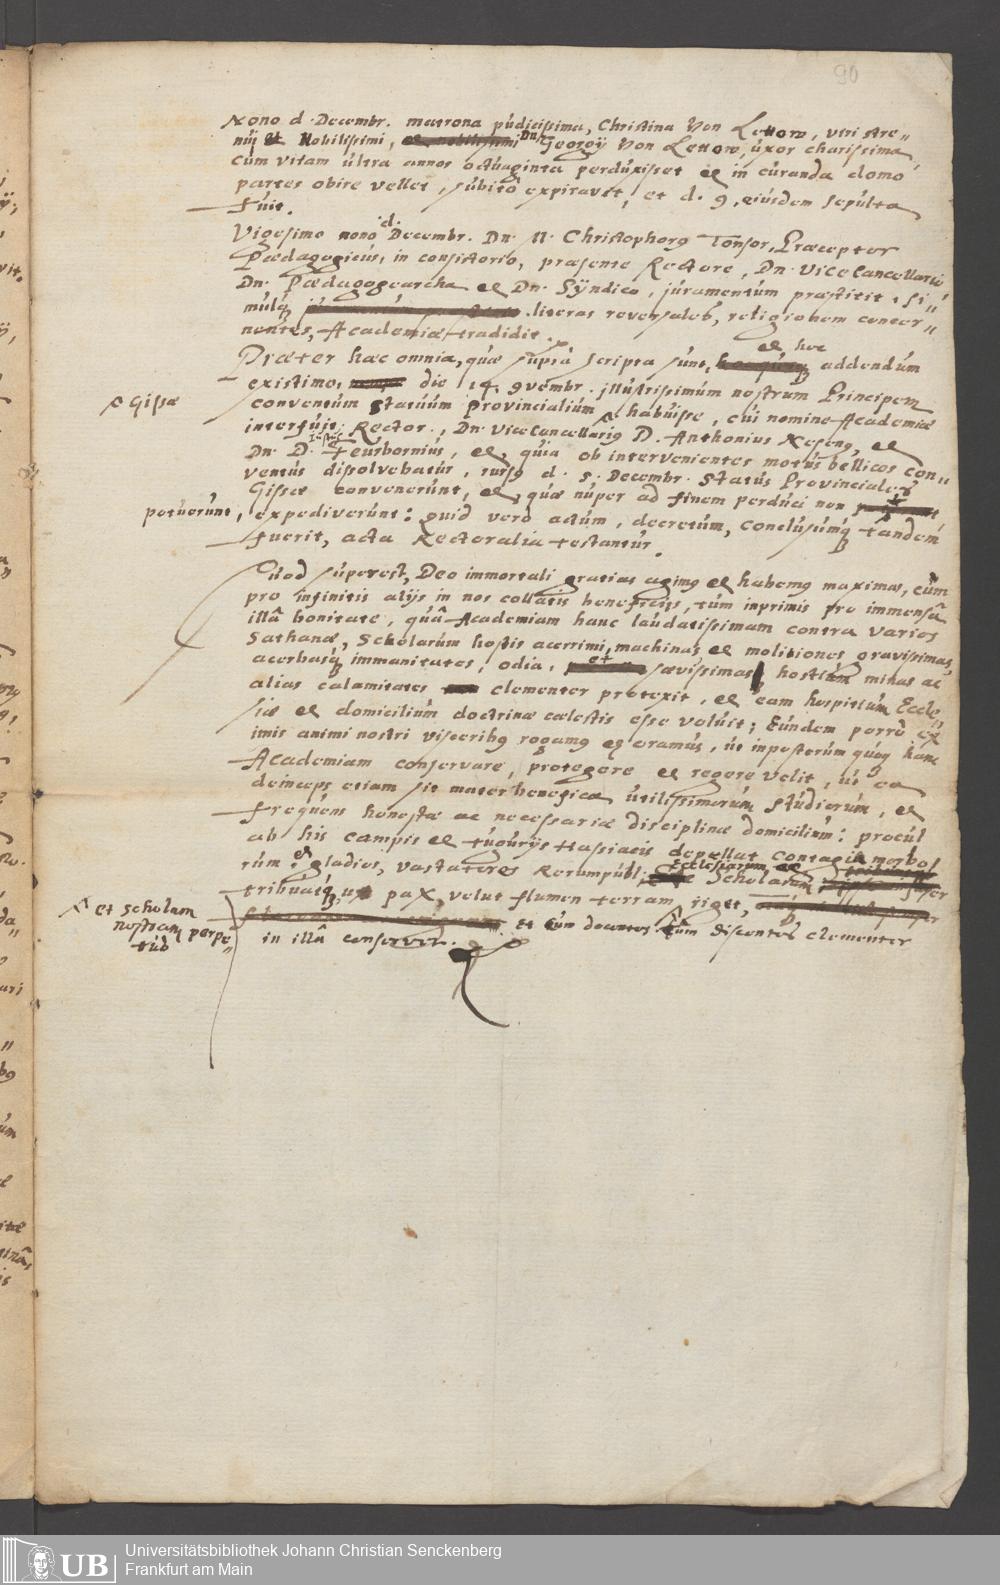 90
Nono d. Decembr. matrona pudicissima, Christina Von Lettow, viri stre„
nuj et Nobilissimi, et nobilissimi Dn. Georgij Von Lettow, uxor charissima
cum vitam ultra annos octuaginta perduxisset et in curanda domo
partes obire vellet, subitò expiravit, et d. 9. eiusdem sepulta
fuit.
Vigesimo nono d. Decembr. Dn. M. Christophorus Tonsor, Præceptor
Pædagogicus, in consistorio, præsente Rectore, Dn. ViceCancellario
Dn. Pædagogearcha et Dn. Syndico, juramentum præstitit, Si„
mulq literas reversales, religionem concer„
nentes, Academiæ tradidit.
Præter hæc omnia, quæ suprà scripta sunt, et hoc addendum
existimo, die 14. 9vembr. illustrissimum nostrum Principem
conventum Statuum provincialium Gissæ habuisse, cui nomine Academiæ
interfuit Rector, Dn. ViceCancellarius D. Anthonius Nesenus, et
Dn. D. Justus Feurbornius, et, quia ob intervenientes motus bellicos con„
ventus dissolvebatur, rursus d. 5. Decembr. Status Provinciales
Gissæ convenerunt, et, quæ nuper ad finem perduci non
potuerunt, expediverunt: quid verò actum, decretum, conclusumq tandem
fuerit, acta Rectoralia testantur.
Quod superest, Deo immortali gratias agimus et habemus maximas, cùm
pro infinitis alijs in nos collatis beneficijs, tùm inprimis pro immensâ
illâ bonitate, quâ Academiam hanc laudatissimam contra varias
Sathanæ, Scholarum hostis acerrimi, machinas et molitiones gravissimas,
acerbasq immanitates, odia, et sævissimas hostium minas ac
alias calamitates clementer protexit, et eam hospitium Eccle„
siæ et domicilium doctrinæ cælestis esse voluit; Eundem porrò ex
imis animi nostri visceribus rogamus et oramus, ut inposterum quoq hanc
Academiam conservare, protegere et regere velit, ut ea
deinceps etiam sit mater benefica utilissimorum studiorum, et
frequens honestæ ac necessariæ disciplinæ domicilium: procul
ab his campis et tugurijs Hassiacis depellat contagia morbo„
rum et gladios, vastatores Rerumpubl. Ecclesiarum et Scholarum
tribuatq, ut pax, velut flumen terram riget, et scholam nostram perpe„tuò
et cùm docentes tùm discentes clementer
in illâ conservet.
Universitätsbibliothek Johann Christian Senckenberg
Frankfurt am Main
UB